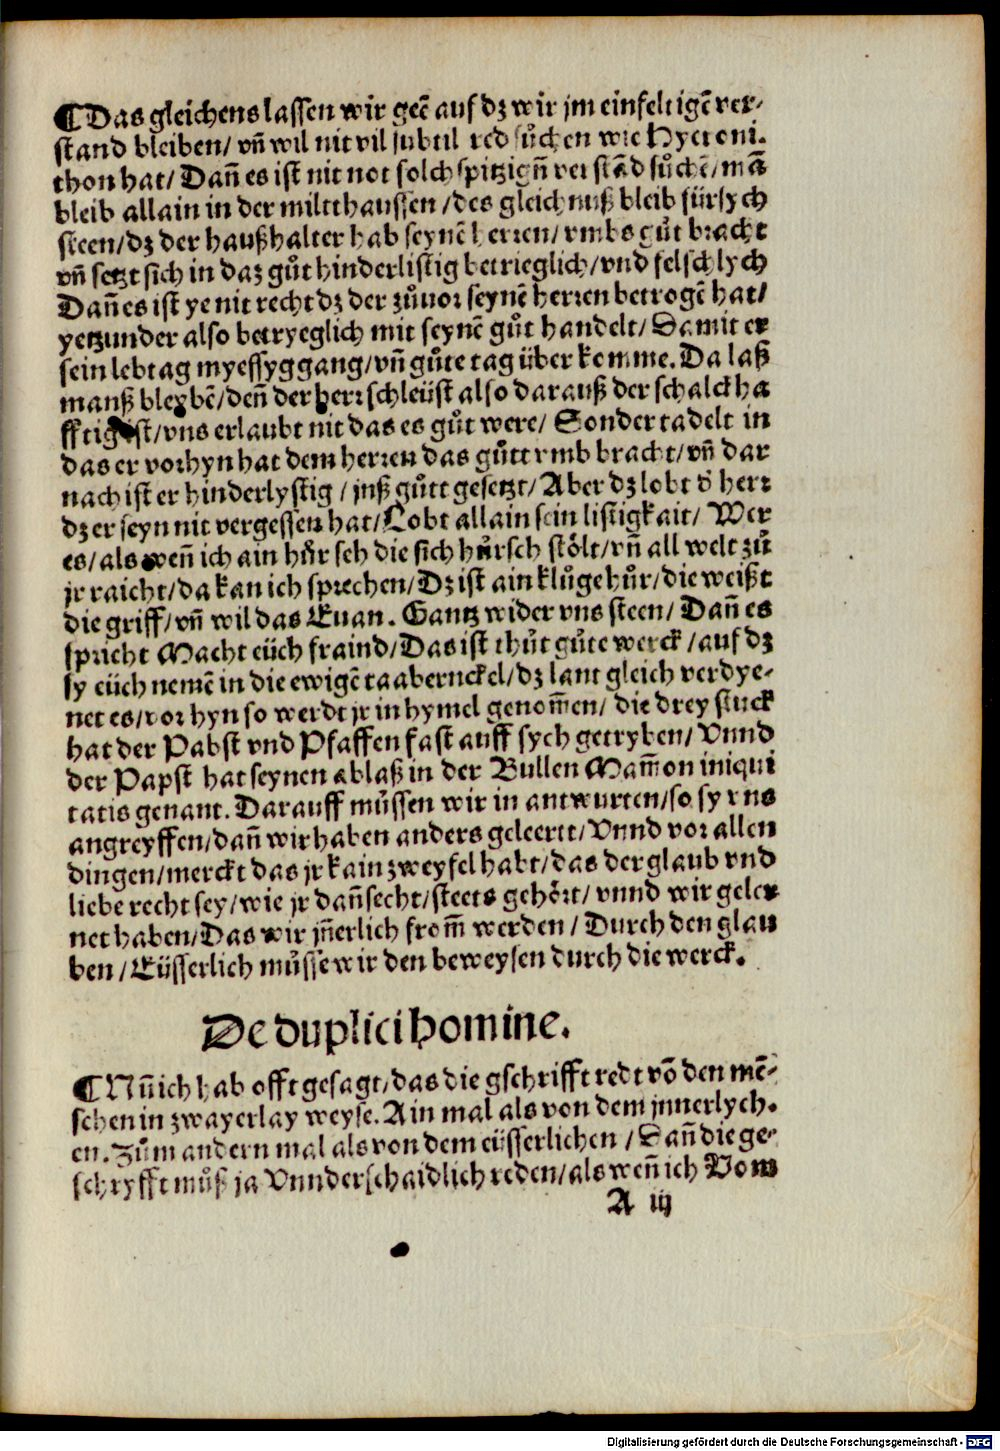 ¶Das gleichens lassen wir geē auf dz wir jm einfeltigē ver-
stand bleiben/ vn̄ wil nit vil subtil red sůchen wie Hyeroni.
thon hat/ Dan̄ es ist nit not solch spitzign̄ verstād sůchē/ mā
bleib allain in der miltthaussen /des gleichnuß bleib fürsych
steen/dz der haußhalter hab seynē herren/ vmbs gůt bracht
vn̄ setzt sich in daz gůt hinderlistig betrieglich/vnd felschlych
Dan̄ es ist ye nit recht dz der zůuor seynē herren betrogē hat/
yetzunder also betryeglich mit seynē gůt handelt/ Damit er
sein lebtag myessyggang/vn̄ gůte tag über komme. Da laß
manß bleybē/den̄ der herr schleüst also darauß der schalckha
fftig ist/vns erlaubt nit das es gůt were/ Sonder tadelt in
das er vorhyn hat dem herren das gůtt vmb bracht/ vn̄ dar
nach ist er hinderlystig / jnß gůtt gesetzt/ Aber dz lobt d̄ herr
dz er seyn nit vergessen hat/ Lobt allain sein listigkait/ Wer
es/ als wen̄ ich ain hůr seh die sich hůrsch stölt/vn̄ all welt zů
jr raicht/da kan ich sprechen/ Dz ist ain klůge hůr/die weißt
die griff/ vn̄ wil das Euan. Gantz wider vns steen/ Dan̄ es
spricht Macht eüch fraind/Das ist thůt gůte werck /auf dz
sy eüch nemē in die ewigē taabernckel/dz laut gleich verdye-
net es/vorhyn so werdt jr in hymel genom̄en/ die drey stuck
hat der Pabst vnd Pfaffen fast auff sych getryben/ Vnnd
der Papst hat seynen ablaß in der Bullen Mam̄on iniqui
tatis genant. Darauff můssen wir in antwurten/so sy vns
angreyffen/dan̄ wir haben anders geleert/ Vnnd vor allen
dingen/merckt das jr kain zweyfel habt/das der glaub vnd
liebe recht sey/wie jr dan̄ secht/steets gehört/ vnnd wir geler
net haben/Das wir jn̄erlich from̄ werden / Durch den glau
ben /Eüsserlich můsse wir den beweysen durch die werck.
De duplici homine.
¶Nun̄ ich hab offt gesagt/das die gschrifft redt vō den mē-
schen in zwayerlay weyse. Ain mal als von dem jnnerlych.
en. Zům andern mal als von dem eüsserlichen / Dan̄ die ge-
schryfft můß ja Vnnderschaidlich reden/als wen̄ ich Vom
A iij
Digitalisierung gefördert durch die Deutsche Forschungsgemeinschaft - DFG